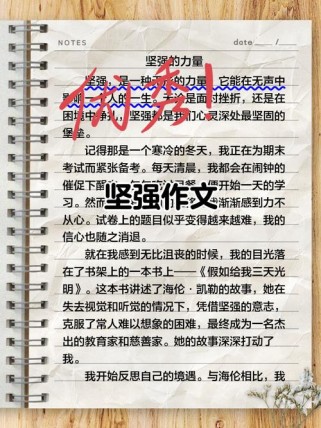 NOTES
date ___ /___
坚强的力量
坚强，是一种无声的力量，它能在无声中
影响一个人的一生。无论是面对挫折，还是在
困境中挣扎，坚强都是我们心灵深处最坚固的
堡垒。
优秀！
记得那是一个寒冷的冬天，我正在为期末
考试而紧张备考。每天清晨，我都会在闹钟的
催促下醒来，
便开始一天的学
习。然而
我渐渐感到力不
坚强作文
从心。试卷上的题目似乎变得越来越难，我的
信心也随之消退。
就在我感到无比沮丧的时候，我的目光落
在了书架上的一本书上——《假如给我三天光
明》。这本书讲述了海伦·凯勒的故事，她在
失去视觉和听觉的情况下，凭借坚强的意志，
克服了常人难以想象的困难，最终成为一名杰
出的教育家和慈善家。她的故事深深打动了
我。
我开始反思自己的境遇。与海伦相比，我